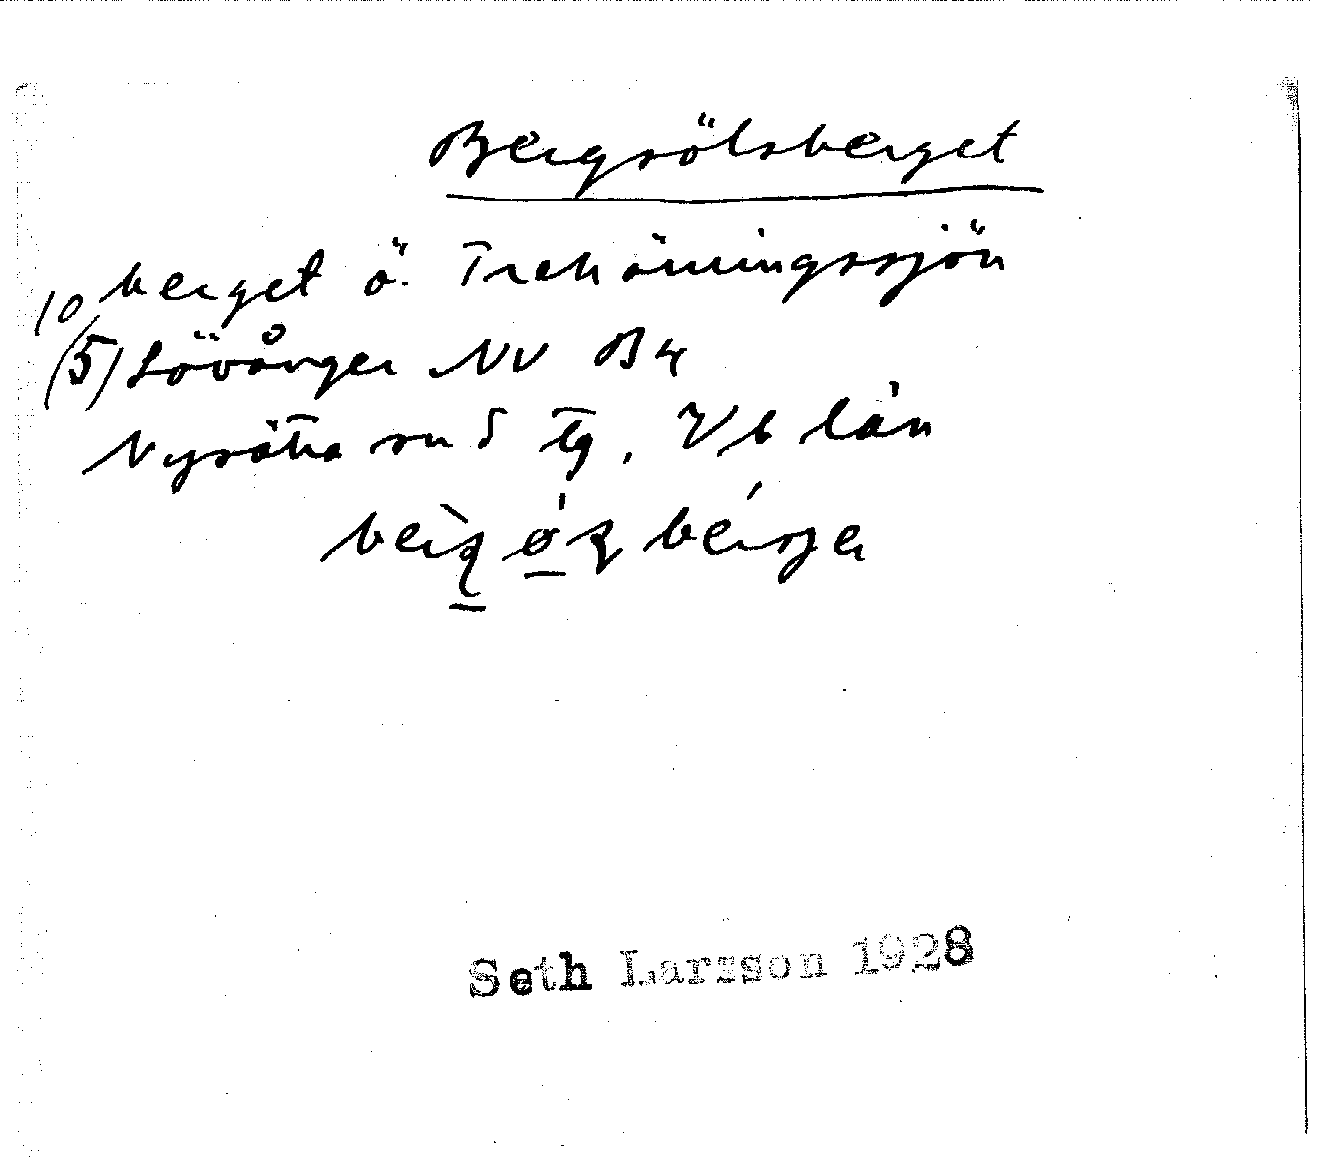 Bergsölsberget
berget ö. Trehörningssjön
10
(5) Lövånger NV B4
Nysätra sn S tg, Vb län
Seth Larsson 1928